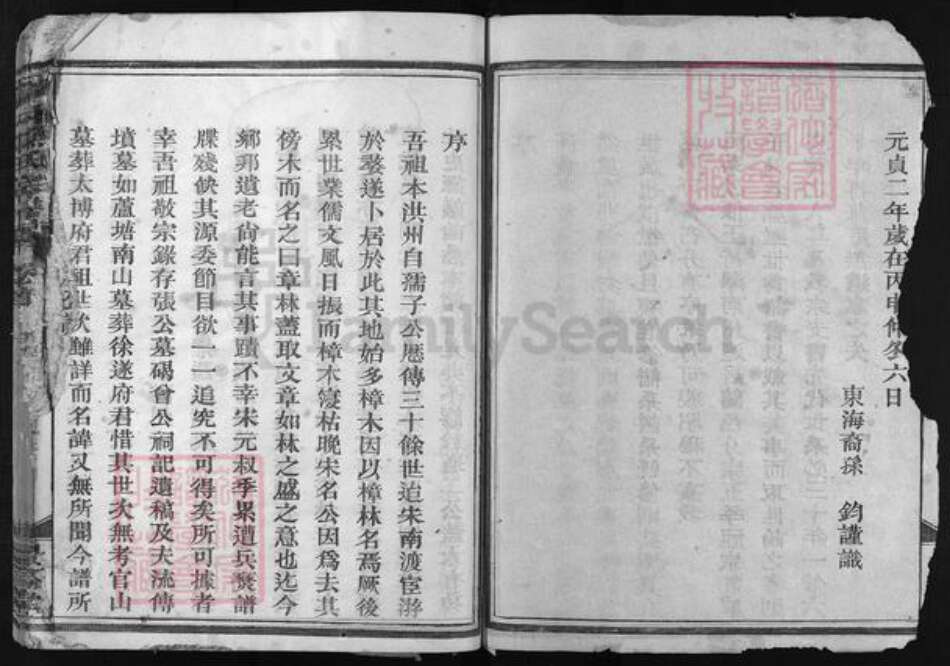 元貞二年歲在丙申脩冬六日
東海裔孫 鈞謹識
序
吾祖本洪州自孺子公厯傳三十餘世迨宋南渡宦游
於婺遂卜居於此其地始多樟木因以樟林名焉厥後
累世業儒文風日振而樟木寖枯晚宋名公因爲去其
傍木而名之曰章林蓋取文章如林之盛之意也迄今
鄉那遺老尙能言其事蹟不幸宋元叔季累遭兵燹譜
牒殘缺其源委節目欲一一追究不可得矣所可據者
幸吾祖敬宗錄存張公墓碣曾公祠記遺稿及夫流傳
墳墓如蘆塘南山墓葬徐遂府君惜其世次無考官山
墓葬太博府君祖世次雖詳而名諱又無所聞今譜所
FamilySearch